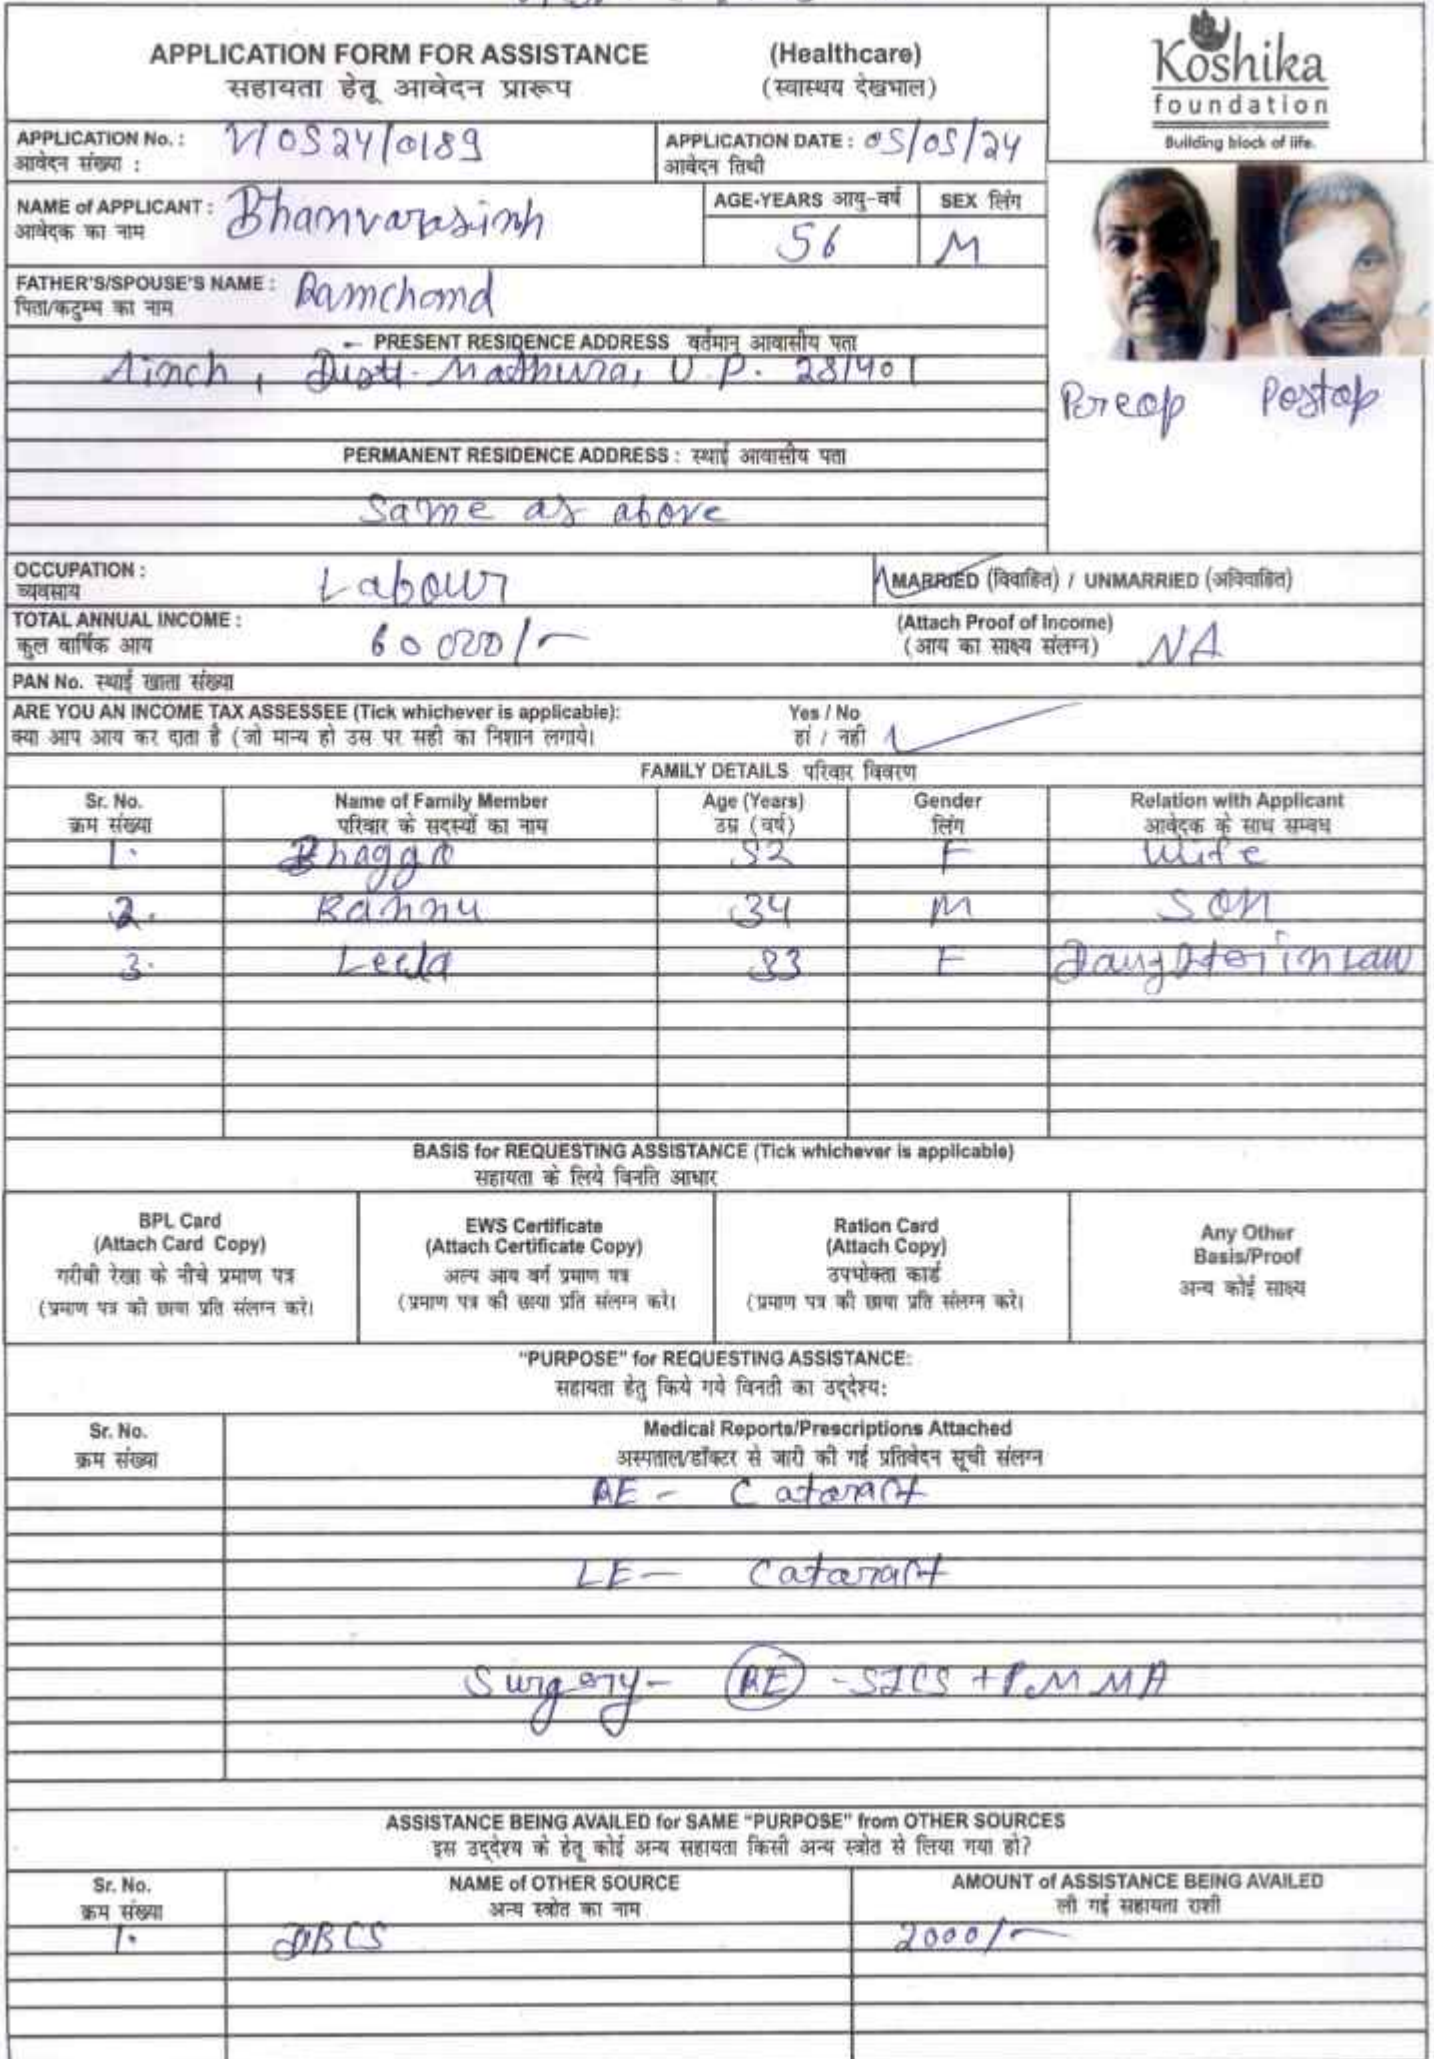 APPLICATION FORM FOR ASSISTANCE (Healthcare)
सहायता हेतू आवेदन प्रारूप (स्वास्थय देखभाल)
Koshika
foundation
Building block of life.
APPLICATION No. : V10524/0189
आवेदन संख्या :
APPLICATION DATE : 05/05/24
आवेदन तिथी
NAME of APPLICANT : Bhanvarasinh
आवेदक का नाम
AGE-YEARS आयु-वर्ष SEX लिंग
56 M
FATHER'S/SPOUSE'S NAME : Ramchand
पिता/कटुम्भ का नाम
PRESENT RESIDENCE ADDRESS वर्तमान आवासीय पता
Distt. Mathura, U.P. 281401
Preop Postop
PERMANENT RESIDENCE ADDRESS : स्थाई आवासीय पता
Same as above
OCCUPATION : Labour
व्यवसाय
MARRIED (विवाहित) / UNMARRIED (अविवाहित)
TOTAL ANNUAL INCOME : 60000/-
कुल वार्षिक आय
(Attach Proof of Income) NA
(आय का साक्ष्य संलग्न)
PAN No. स्थाई खाता संख्या
ARE YOU AN INCOME TAX ASSESSEE (Tick whichever is applicable): Yes / No
क्या आप आय कर दाता है (जो मान्य हो उस पर सही का निशान लगाये। हां / नही
FAMILY DETAILS परिवार विवरण
Sr. No. Name of Family Member Age (Years) Gender Relation with Applicant
क्रम संख्या परिवार के सदस्यों का नाम उम्र (वर्ष) लिंग आवेदक के साथ सम्बध
1. Bhaggo 52 F Wife
2. Rannu 34 M Son
3. Leela 33 F Daughter in Law
BASIS for REQUESTING ASSISTANCE (Tick whichever is applicable)
सहायता के लिये विनति आधार
BPL Card
(Attach Card Copy)
गरीबी रेखा के नीचे प्रमाण पत्र
(प्रमाण पत्र की छाया प्रति संलग्न करे।
EWS Certificate
(Attach Certificate Copy)
अल्प आय वर्ग प्रमाण पत्र
(प्रमाण पत्र की छाया प्रति संलग्न करे।
Ration Card
(Attach Copy)
उपभोक्ता कार्ड
(प्रमाण पत्र की छाया प्रति संलग्न करे।
Any Other
Basis/Proof
अन्य कोई साक्ष्य
"PURPOSE" for REQUESTING ASSISTANCE:
सहायता हेतु किये गये विनती का उद्देश्य:
Sr. No. Medical Reports/Prescriptions Attached
क्रम संख्या अस्पताल/डॉक्टर से जारी की गई प्रतिवेदन सूची संलग्न
RE - Cataract
LE - Cataract
Surgery - RE - SICS + PMMA
ASSISTANCE BEING AVAILED for SAME "PURPOSE" from OTHER SOURCES
इस उद्देश्य के हेतू कोई अन्य सहायता किसी अन्य स्त्रोत से लिया गया हो?
Sr. No. NAME of OTHER SOURCE AMOUNT of ASSISTANCE BEING AVAILED
क्रम संख्या अन्य स्त्रोत का नाम ली गई सहायता राशी
1. DBCS 2000/-